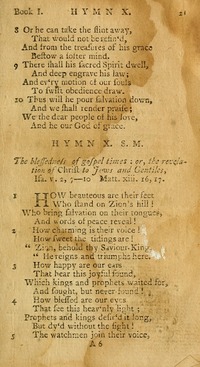 Book I. HYMN X. 21
8 Or he can take the flint away,
That would not be refin'd,
And from the treasures of his grace
Bestow a softer mind.
9 There shall his sacred Spirit dwell,
And deep engrave his law;
And ev'ry motion of our souls
To swift obedience draw.
10 Thus will he pour salvation down,
And we shall render praise;
We the dear people of his love,
And he our God of grace.
HYMN X. S. M.
The blessedness of gospel times: or, the revelation of Christ to Jews and Gentiles,
Isa. v. 2, 7—10 Matt. xiii. 16, 17.
1 HOW beauteous are their feet
Who stand on Zion's hill!
Who bring salvation on their tongues,
And words of peace reveal!
2 How charming is their voice!
How sweet the tidings are!
"Zion, behold thy Saviour-King,
"He reigns and triumphs here.
3 How happy are our ears
That hear this joyful sound,
Which kings and prophets waited for,
And sought, but never found!
4 How blessed are our eyes
That see this heav'nly light;
Prophets and kings desir'd it long,
But dy'd without the sight!
5 The watchmen join their voice,
A 6